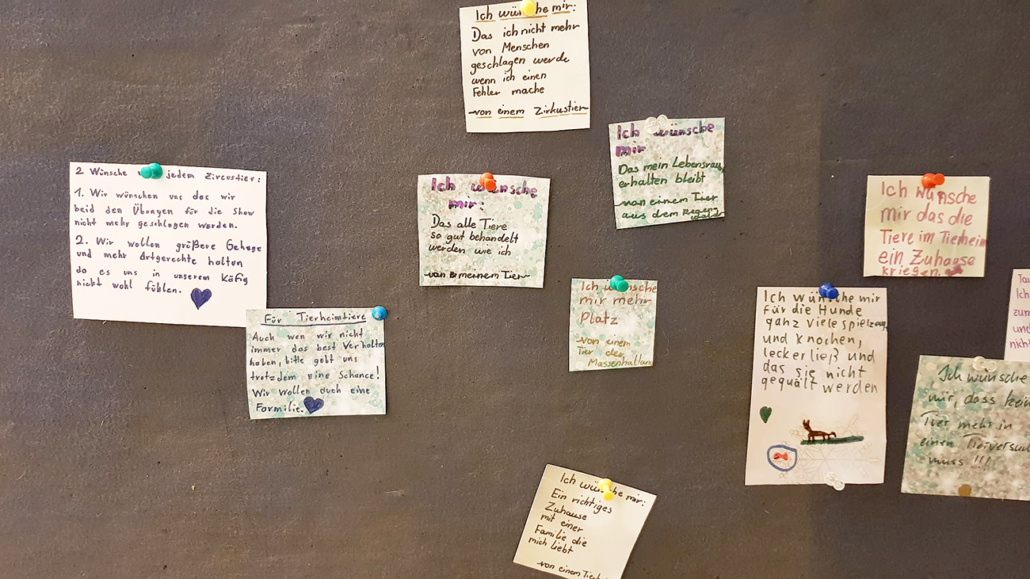 Ich wünsche mir:
Das ich nicht mehr
von Menschen
geschlagen werde
wenn ich einen
Fehler mache
von einem Zirkustier
Ich wünsche
mir
Das mein Lebensraum
erhalten bleibt
von einem Tier
aus dem Regenwald
2 Wünsche jedem Zircustier:
1. Wir wünschen uns das wir
beid den Übungen für die Show
nicht mehr geschlagen worden.
2. Wir wollen größere Gehege
und mehr artgerechte halten
da es uns in unserem Käfig
nicht wohl fühlen.
Ich wünsche
mir:
Das alle Tiere
so gut behandelt
werden wie ich
von meinem Tier
Ich wünsche
mir das die
Tiere im Tierheim
ein Zuhause
kriegen.
Für Tierheimtiere
Auch wen wir nicht
immer das best Verhalten
haben, bitte gebt uns
trotzdem eine Schance!
Wir wollen auch eine
Formilie.
Ich wünsche
mir mehr
Platz
von einem
Tier der
Massenhaltung
Ich wünsche mir
Für die Hunde
ganz viele spielzeug
und Knochen,
leckerließ und
das sie nicht
gequält werden
Ich
und
nicht
Ich wünsche
mir, dass kein
Tier mehr in
einen Tierversuch
muss!!!
Ich wünsche mir:
Ein richtiges
Zuhause
mit einer
Familie die
mich liebt
von einem